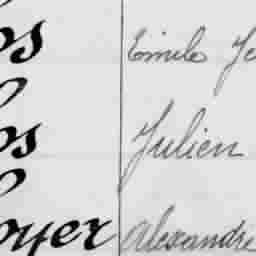 os Emile Je
os Julien
oyer Alexandre